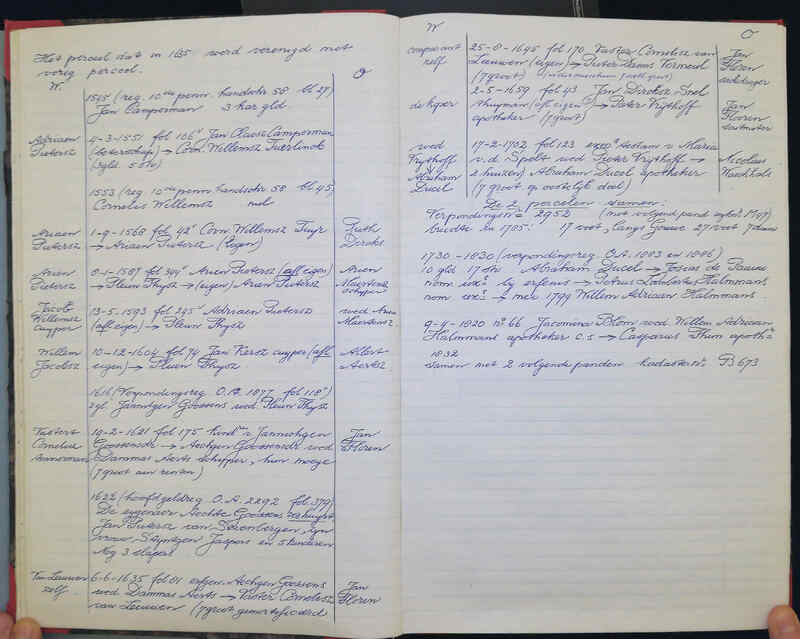 Het perceel dat in 1785 werd verenigd met
vorig perceel.
W. O
1545 (reg. 10de penn. handschr 58 bl 27)
Jan Camporman 3 kar gld.
Adriaen
Pietersz
4-3-1551 fol 106v Jan Claesz Camporman
(boterschap) → Corn. Willemsz Tuerlinck
(3gld. 5 st)
1553 (reg. 10de penn handschr 58 bl 45)
Cornelis Willemsz nul
Ariaen
Pietersz
1-9-1568 fol 42v Corn Willemsz Tuyr
→ Ariaen Pietersz (eigen)
Ruth
Dircks
Arien
Pietersz
8-1-1587 fol 344v Arien Pietersz (afl eigen)
→ Pleun Thysz → (eigen) Arien Pietersz
Arien
Maertensz
schipper
Jacob
Willemsz
cuyper
13-5-1593 fol 245v Adriaen Pietersz
(afl eigen) → Pleun Thysz
wed Arien
Maertensz.
Willem
Jacobsz
10-12-1604 fol 74 Jan Kersz cuyper (afl
eigen) → Pleun Thysz
Allert
Aertsz
1616 (Verpondingsreg O.A. 1077 fol 118v)
zyl. Jannetgen Goossens wed. Pleun Thysz
Vastert
Cornelisz
timmerman
10-2-1621 fol 175 kind. v Jannichgen
Goossensdr → Aechgen Goossensdr wed
Dammas Aerts schipper, hun moeye
(7 groot aen renten)
Jan
Floren
1622 (hoofdgeldreg O.A. 2292 fol 379)
De eigenaer Aechte Goossens verhuyrt
Jan Pietersz van Steenbergen, zyn
vrouw Stijntgen Jaspers en 5 kinderen
Nog 3 slapers
Van Leeuwen
zelf.
6-6-1635 fol 81 erfgen. Aechgen Goossens
wed Dammas Aerts → Vaster Cornelisz
van Leeuwen (7 groot gemortificeerd
Jan
Floren
W O
comparant
zelf
25-8-1645 fol 170 Vaster Cornelisz van
Leeuwen (eigen) → Pieter Leenis Vermeul
(7 groot)
Jan
Floren
zakdrager
de koper
2-5-1659 fol 43 Jan Dircksz Snel
thuyman (afl eigen) → Pieter Vrythoff
apotheker (7 groot)
Jan
Floren
wed
Vrythoff
↓
Abraham
Ducel
17-2-1702 fol 123 execr testam v Maria
v.d. Spelt wed Pieter Vrythoff →
2 huizen) Abraham Ducel apotheker
(7 groot op oostelijk deel)
Nicolaas
De 2 percelen samen:
Verpondings no 2952 (met volgend pand
breedte in 1785: 17 voet, langs Gouwe 27 voet 7 duim
1730-1830 (verpondingsreg. O.A. 1083 en 1086)
10 gld 17 st Abraham Ducel → Josias de Pauw
nom ux. by erfenis → Petrus Lambertus Halmmans
nom ux. → mei 1799 Willem Adriaan Halmmans.
9-4-1820 no 66 Jacomina Blom wed. Willem Adriaan
Halmmans apotheker c.s → Casparus Thim apoth.
1832
samen met 2 volgende panden kadaster no. B 673